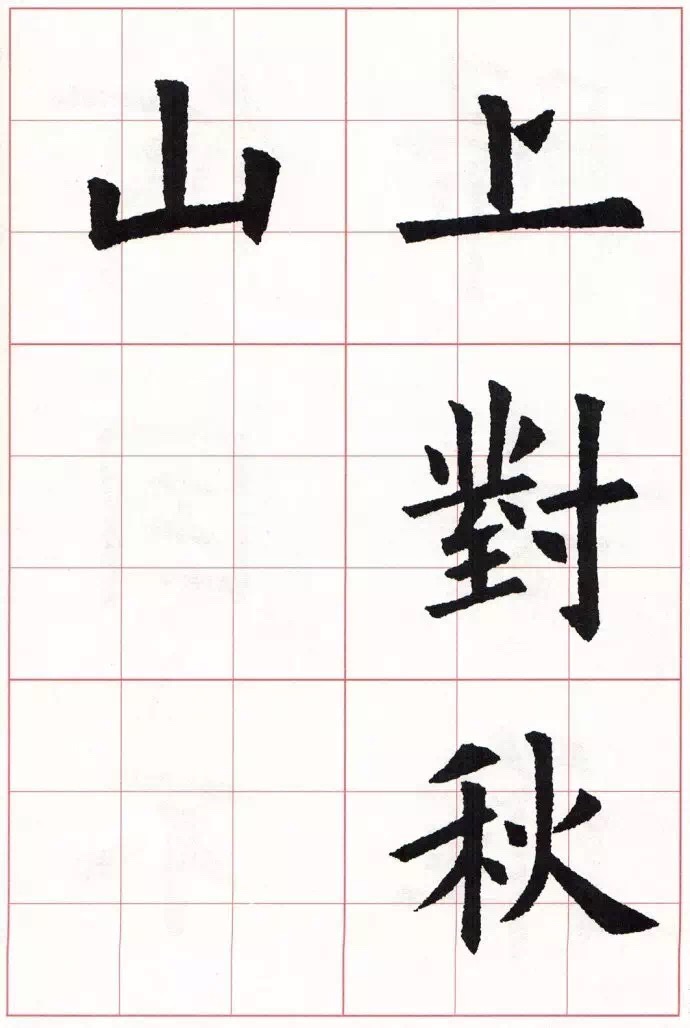 上對秋
山